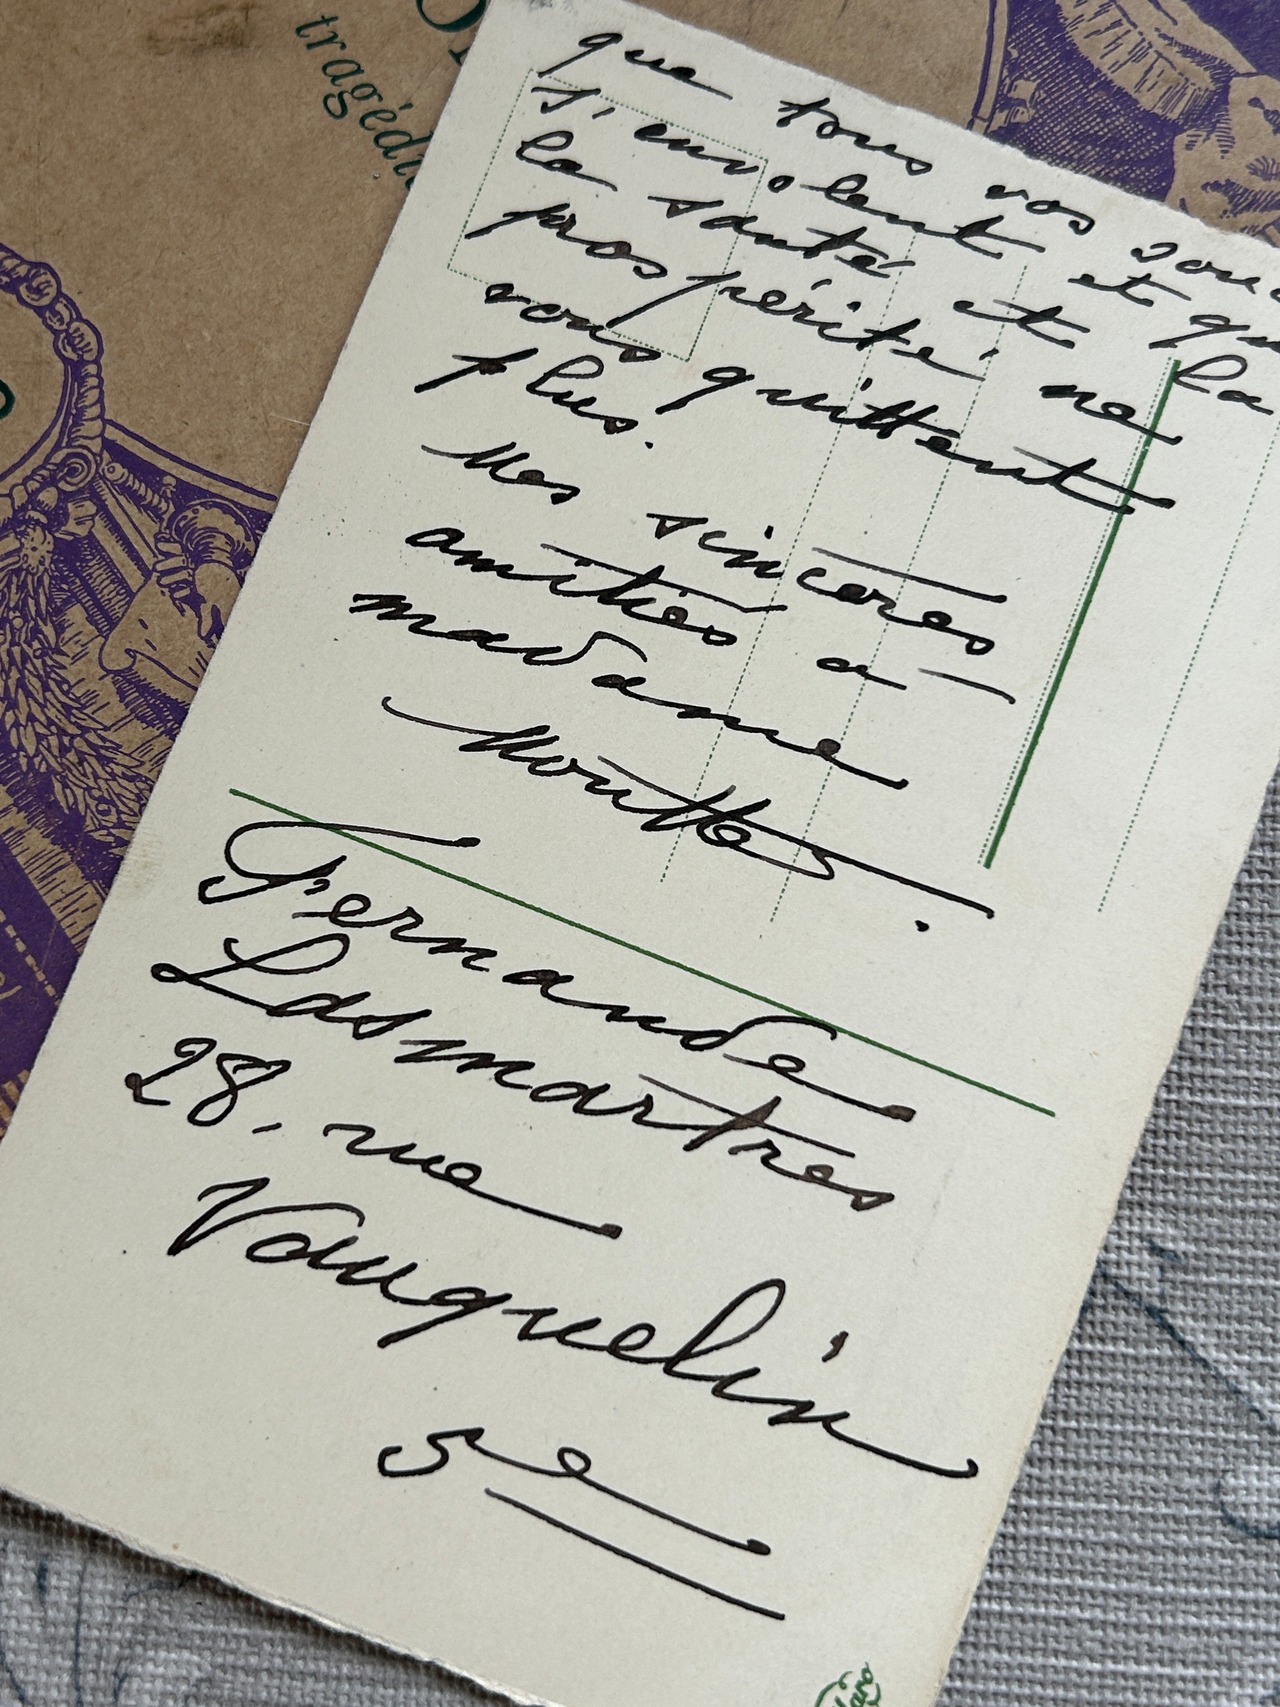 tragédie
que tous vos souc
s'envolent et qu
la santé et la
prospérité ne
vous quittent
plus.
Mes sincères
amitiés à
madame
Mouttes.
Fernande
Lasmartres
28, rue
Vauquelin
5e